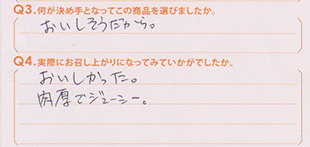 Q3.何が決め手となってこの商品を選びましたか。
おいしそうだから。
Q4.実際にお召し上がりになってみていかがでしたか。
おいしかった。
肉厚でジューシー。